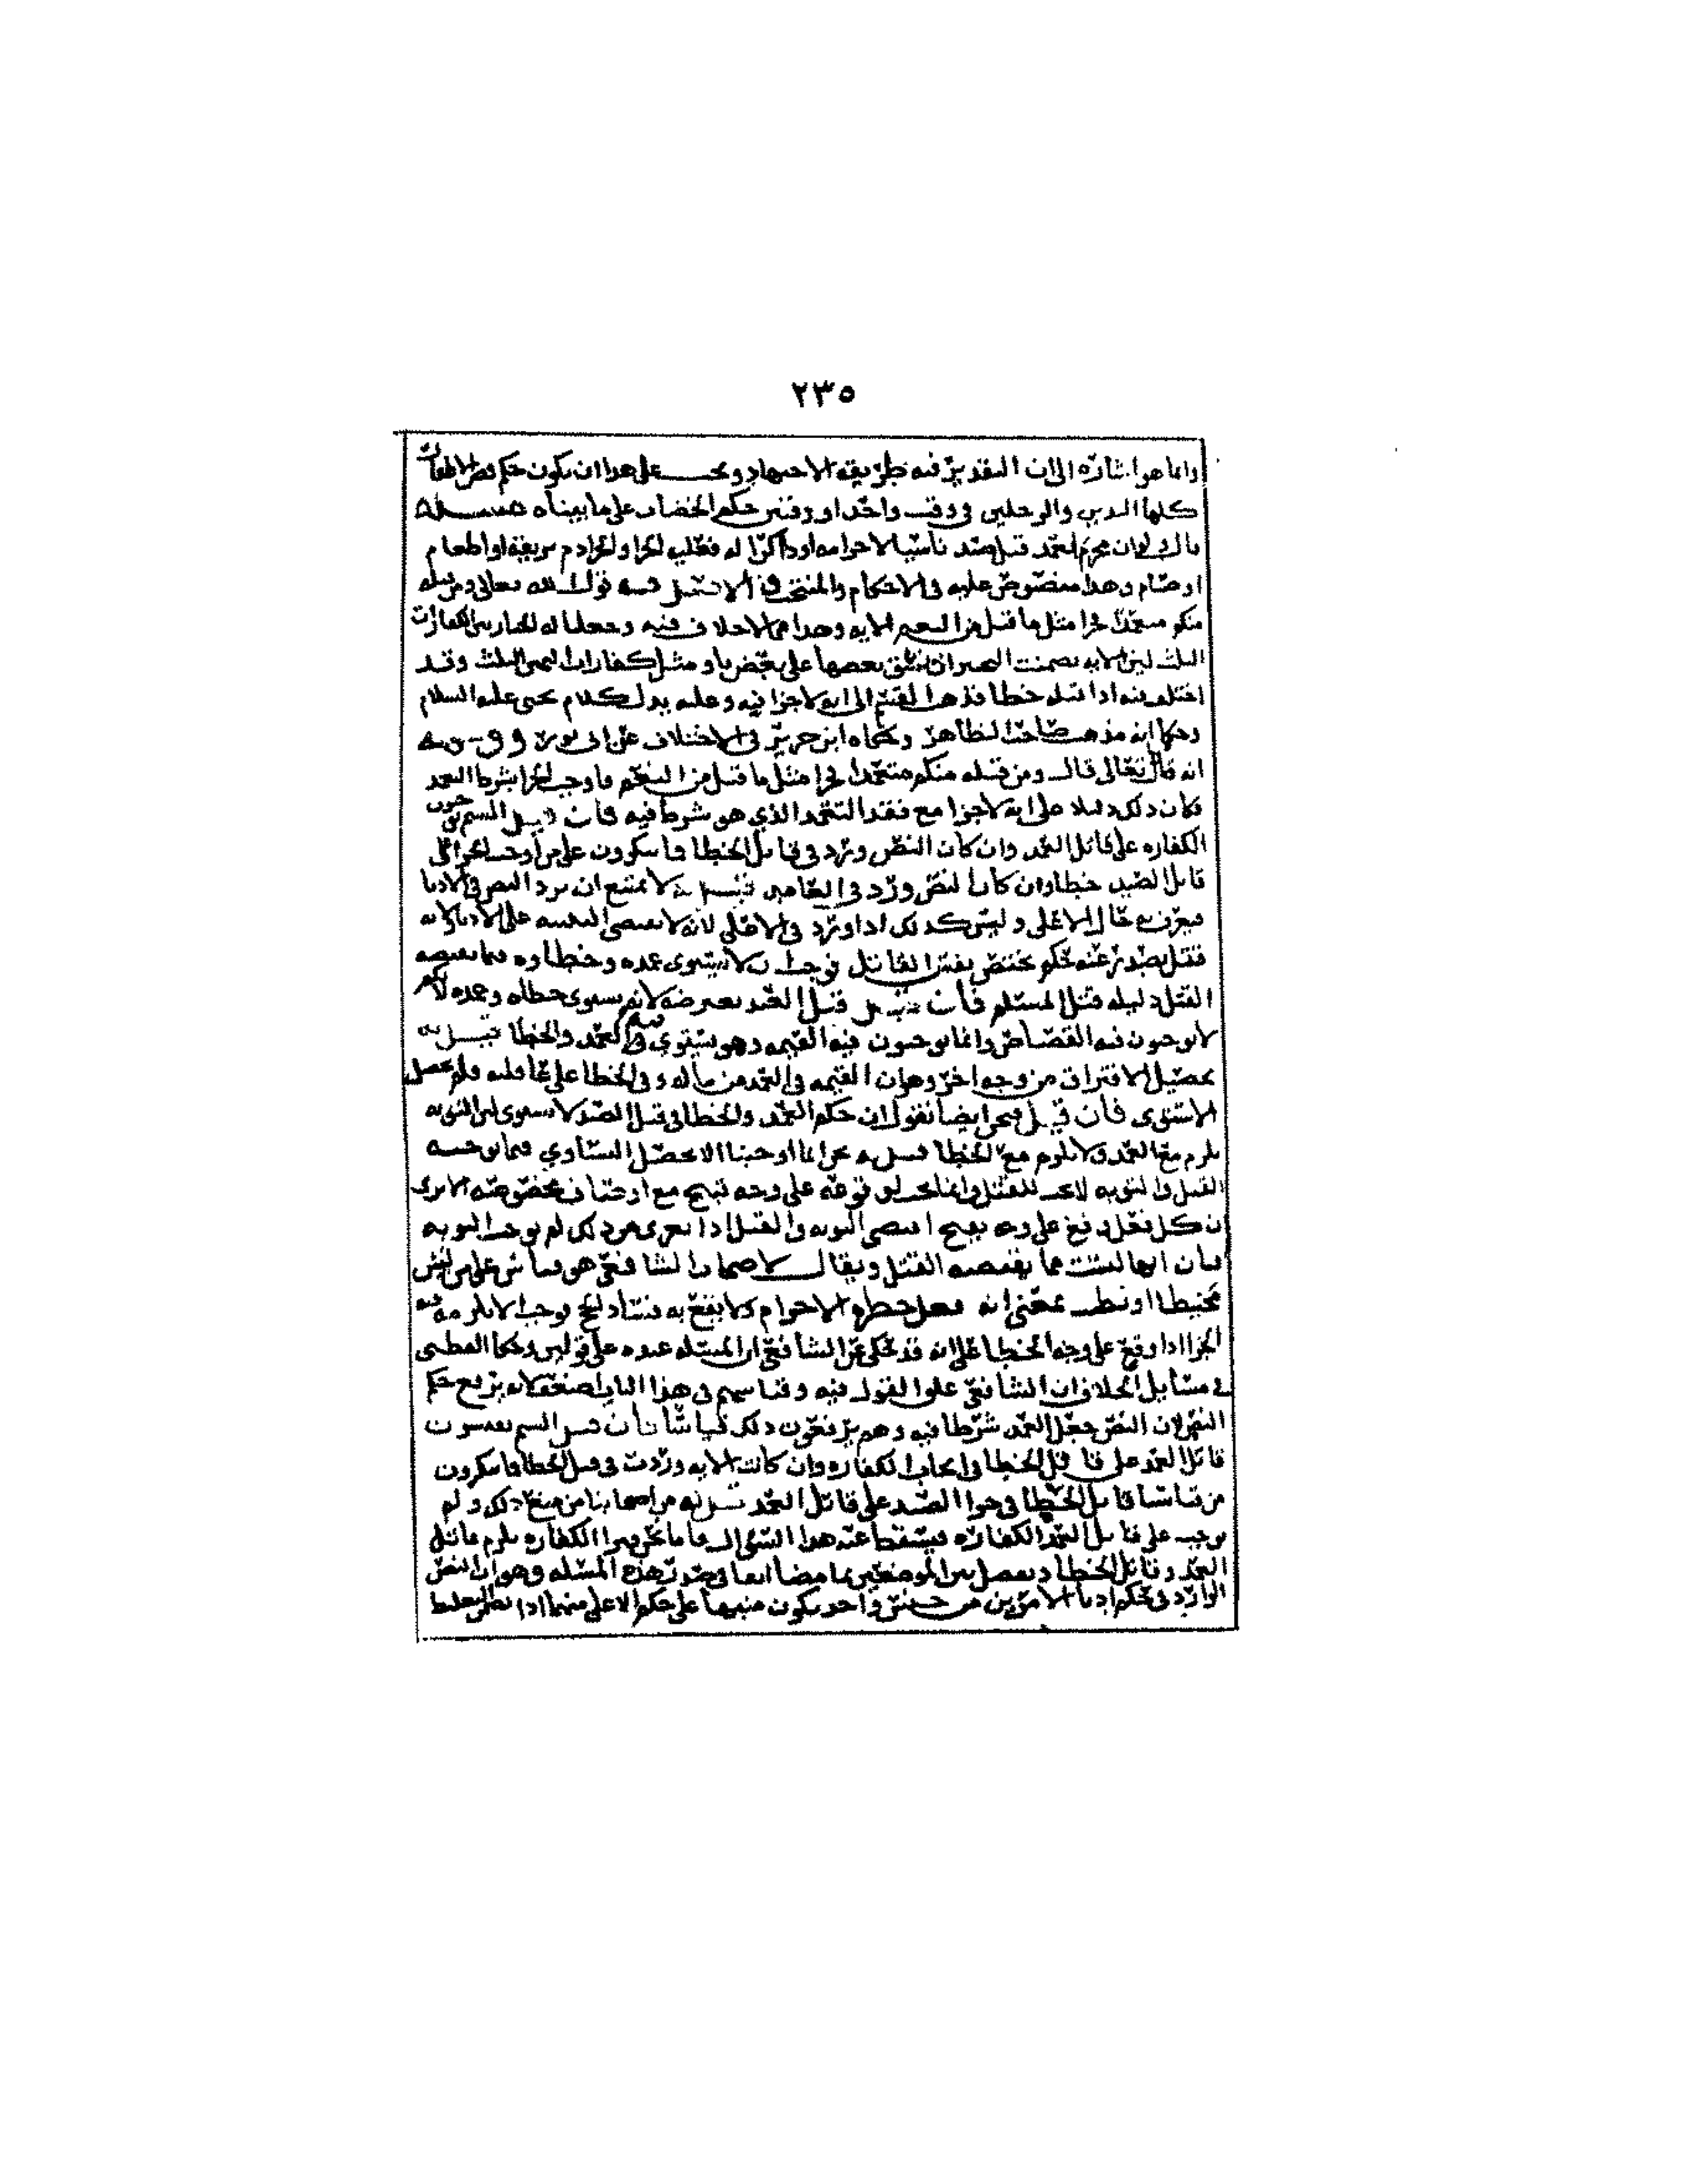 ٢٣٥
وانما هو اشاره الى ان التقدير فيه طريقه الاجتهاد ويجب على هذا ان يكون حكم قص الاظفار
كلها اليدين والرجلين في وقت واحد او وقتين حكم الخضاب على ما بيناه مسئله
قال ولو ان محرم تعمد قتل صيد ناسيا لاحرامه او ذاكرا له فعليه الجزا والجزا دم يريقه او اطعام
او صيام وهذا منصوص عليه في الاحكام والمنتخب الاصل فيه قول الله تعالى ومن قتله
منكم متعمدا فجزا مثل ما قتل من النعم الايه وهذا مما لا خلاف فيه وجعلنا له الخيار بين الكفارات
الثلث لان الايه تضمنت التخيير بعضها على بعض باو مثل كفارات اليمين الثلث وقد
اختلف فيه اذا قتله خطا فذهب القسم الى انه لا جزا فيه وعليه يدل كلام يحيى عليه السلام
وحكى انه مذهب اصحاب الظاهر وحكاه ابن جرير في الاختلاف عن ابي ثور ووجهه
انه قال تعالى قال ومن قتله منكم متعمدا فجزا مثل ما قتل من النعم فاوجب الجزا بشرط التعمد
فكان ذلك دليلا على انه لا جزا مع فقد التعمد الذي هو شرط فيه فان قيل الستم توجبون
الكفاره على قاتل العمد وان كان النص ورد في قاتل الخطا فما تنكرون على من اوجب الجزا على
قاتل الصيد خطا وان كان النص ورد في العامد قيل له لا يمتنع ان يرد النص في الادنا
فيعرف به حال الاعلى وليس كذلك اذا ورد في الاعلى لانه لا يقتضي التنبيه على الادنا ولانه
فقتل صيد عنه حكم يختص بقتل القاتل فوجب ان لا يستوي عمده وخطاوه فيما يقتضيه
القتل دليله قتل المسلم فان قيل قتل العبد يعترضه لانه يستوي خطاه وعمده لانكم
لا توجبون فيه القصاص وانما توجبون فيه القيمه وهو يستوي فيه العمد والخطا قيل له
يحصل الافتراق من وجه اخر وهو ان القيمه في العمد من ماله وفي الخطا على عاقلته ولم يحصل
الاستوى فان قيل فنحن ايضا نقول ان حكم العمد والخطا في قتل الصيد لا يستوي لان التوبه
تلزم مع العمد ولا تلزم مع الخطا قيل له نحن انما اوجبنا الا يحصل التساوي فيما يوجبه
القتل والتوبه لا تجب للقتل وانما تجب لو قوعه على وجه قبيح مع اوصاف مخصوصه الا ترى
ان كل فعل وقع على وجه يقبح اقتضى التوبه والقتل اذا تعرى من ذلك لم يوجب التوبه
فبان انها ليست مما يقتضيه القتل ويقال لاصحاب الشافعي هو قياس على من لبس
مخيطا او تطيب بمعنى انه فعل حظره الاحرام ولا يقع به فساد الحج فوجب الا يلزمه فيه
الجزا اذا وقع على وجه الخطا على انه قد حكي عن الشافعي ان المسئله عنده على قولين وحكا
في مسائل الخلاف ان الشافعي علق القول فيه وقياسهم في هذا الباب ضعيف لانه يرفع حكم
النص لان النص جعل العمد شرطا فيه وهم يرفعون ذلك قياسا فان قيل الستم تقيسون
قاتل العمد على قاتل الخطا في ايجاب الكفاره وان كانت الايه وردت في قتل الخطا فما تنكرون
من قياسنا قاتل الخطا في جزا الصيد على قاتل العمد قيل له من اصحابنا من منع ذلك ولم
يوجب على قاتل العمد الكفاره فيسقط عنه هذا السؤال فاما نحن فنرى الكفاره تلزم قاتل
العمد وقاتل الخطا ونفصل بين الموضعين بما مضا انفا في صدر هذه المسئله وهو ان النص
الوارد في حكم ادنا الامرين من جنس واحد يكون منبها على حكم الاعلى منهما اذا